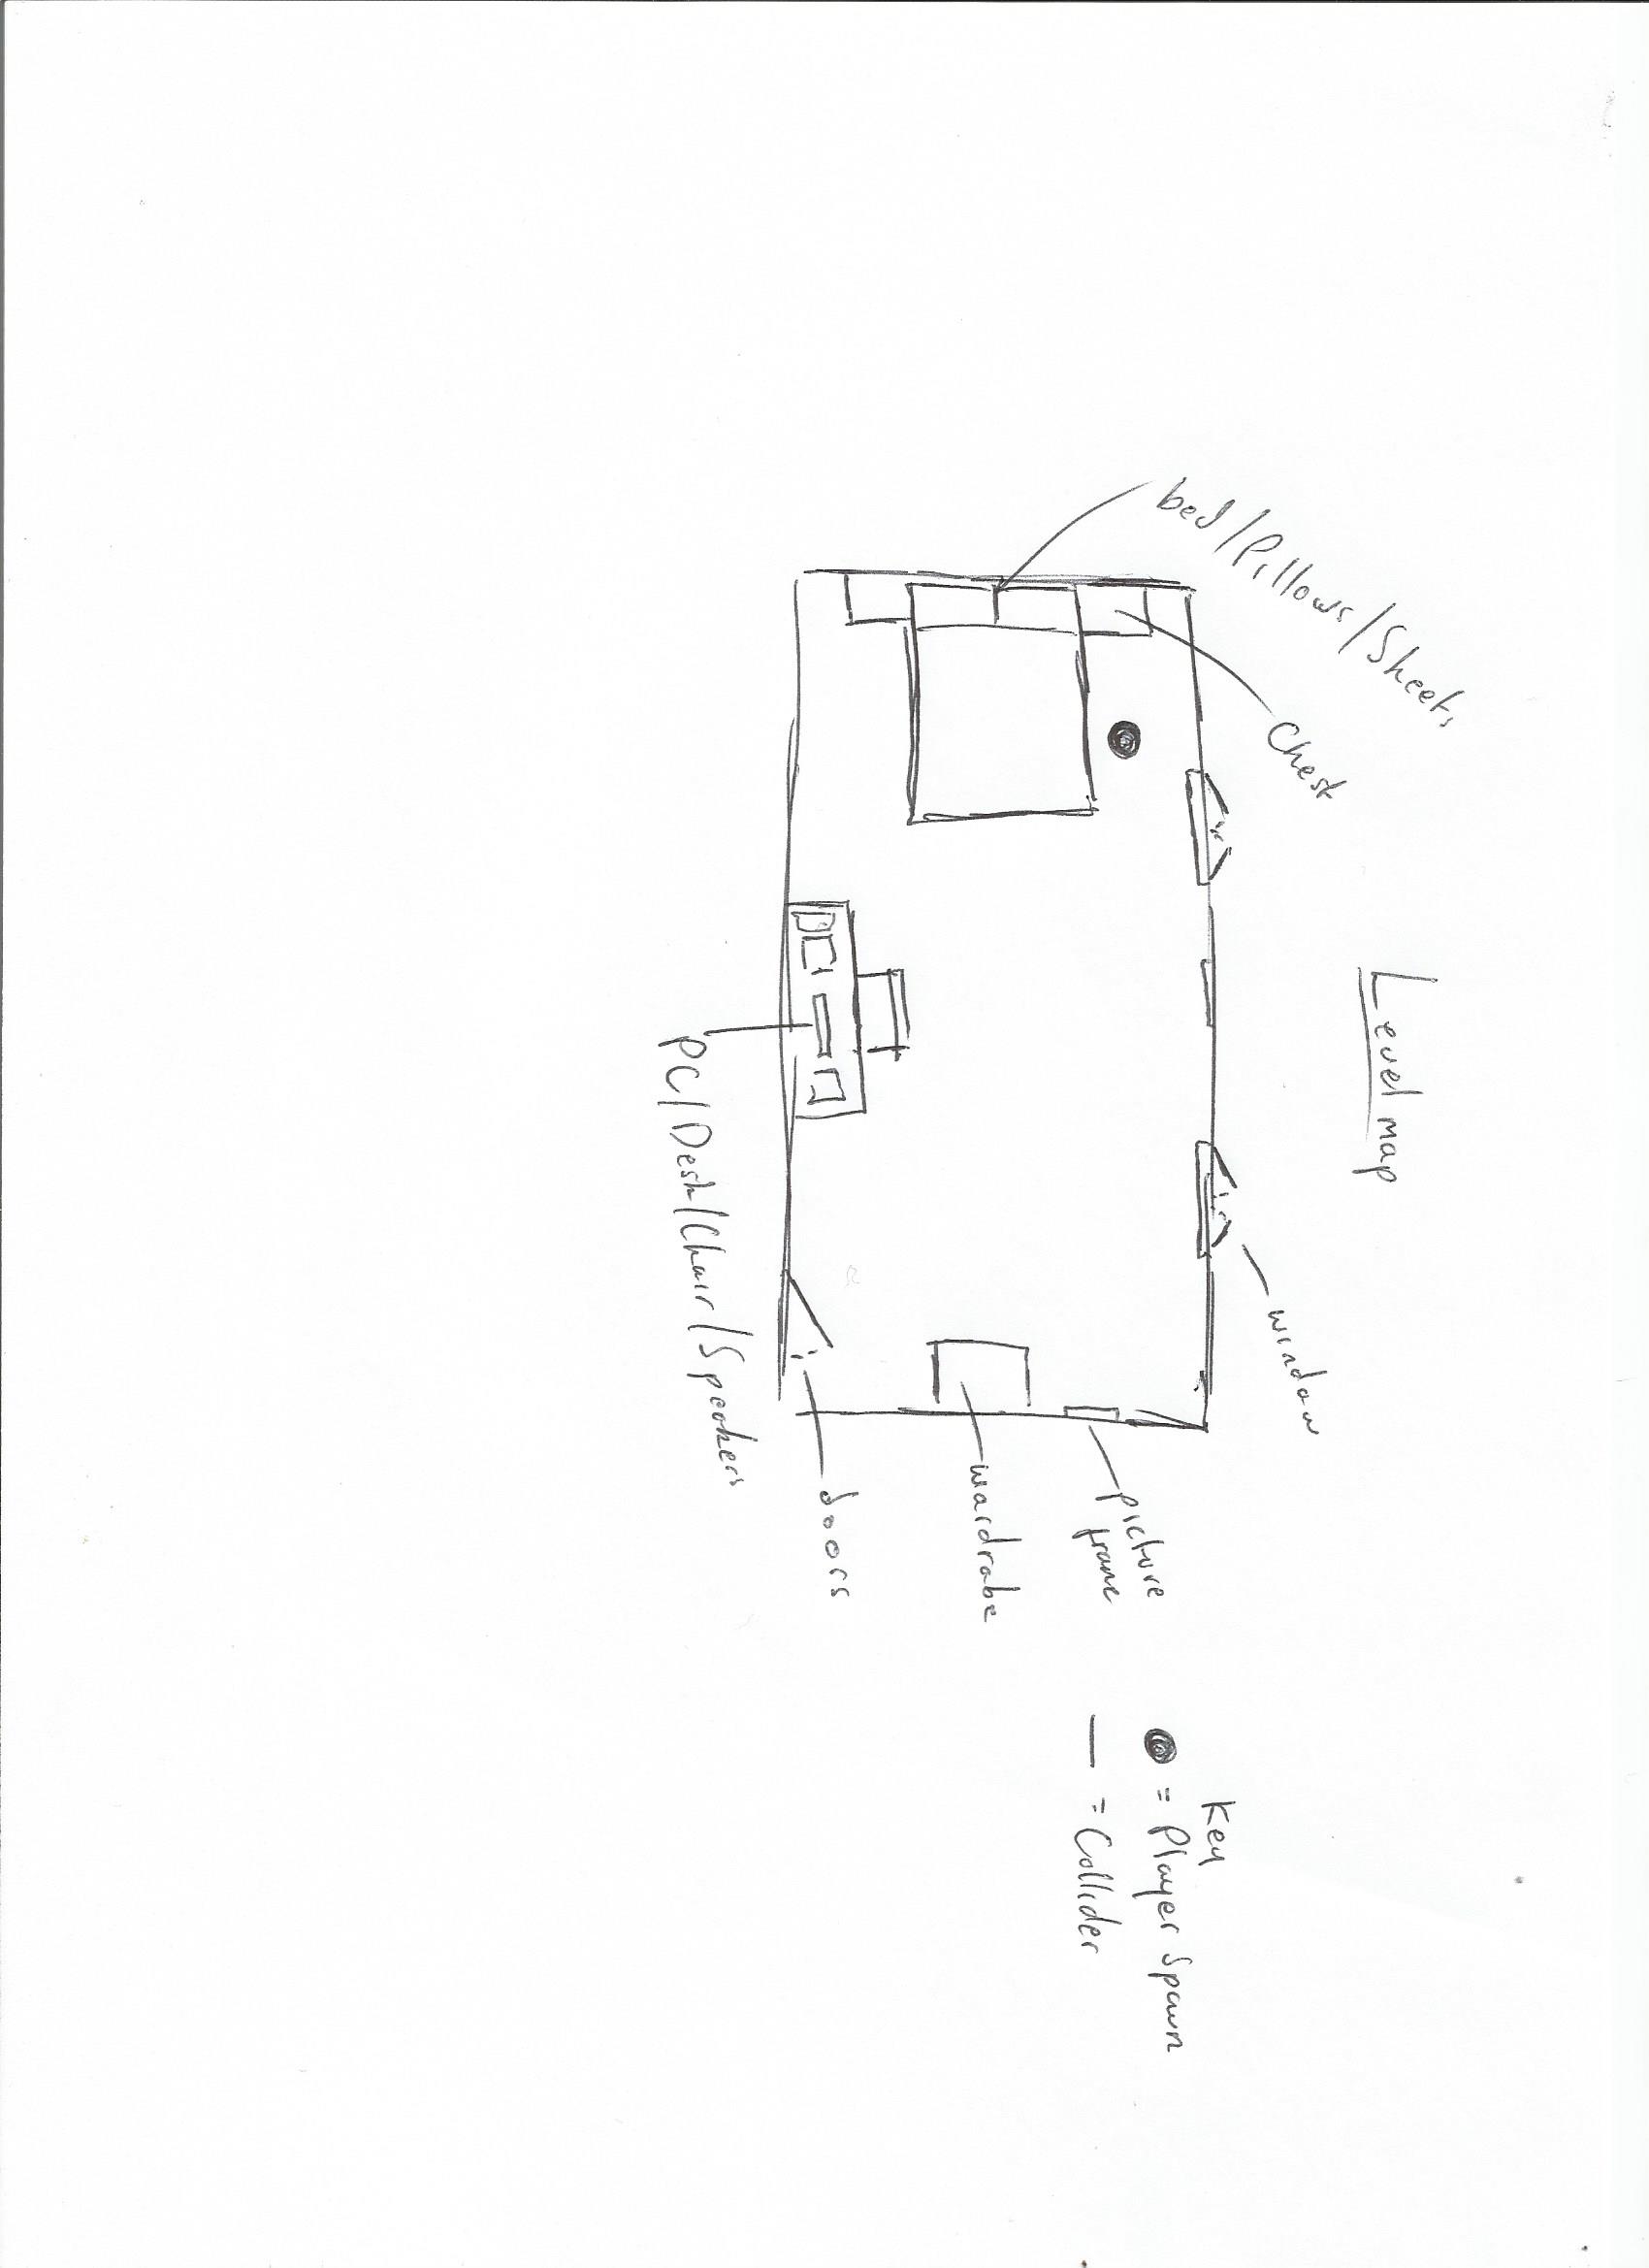 Level map
bed/Pillows/Sheets
Chest
window
picture
frame
wardrabe
doors
PC/Desk/Chair/Speakers
Key
= Player Spawn
= Collider